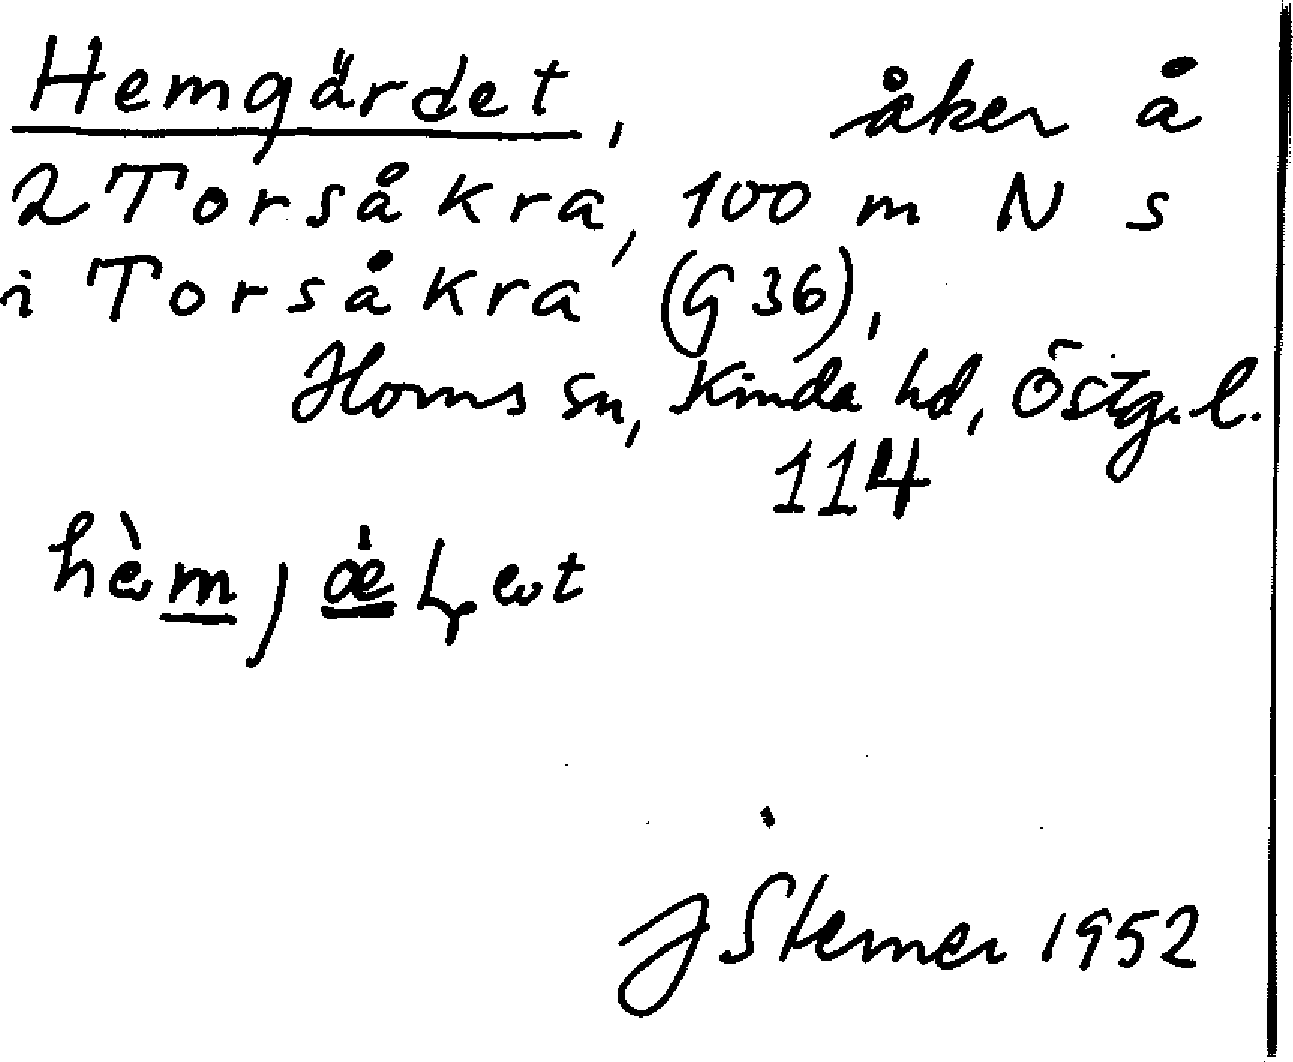 Hemgärdet, åker å
2 Torsåkra, 100 m N s
i Torsåkra (G 36),
Horns sn, Kinda hd, Östg. l.
114
J Sterner 1952